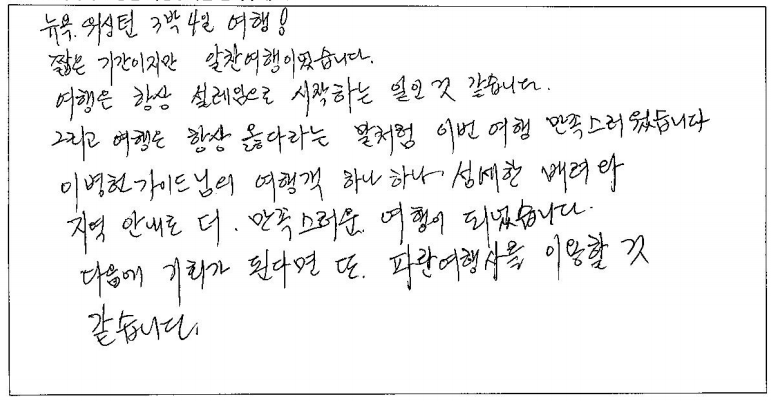 뉴욕. 워싱턴 3박 4일 여행!
짧은 기간이지만 알찬여행이었습니다.
여행은 항상 설레임으로 시작하는 일인 것 같습니다.
그리고 여행은 항상 옳다라는 말처럼 이번 여행 만족스러웠습니다
이병헌가이드님의 여행객 하나하나 섬세한 배려와
지역 안내로 더. 만족스러운 여행이 되었습니다.
다음에 기회가 된다면 또. 파란여행사를 이용할 것
같습니다.